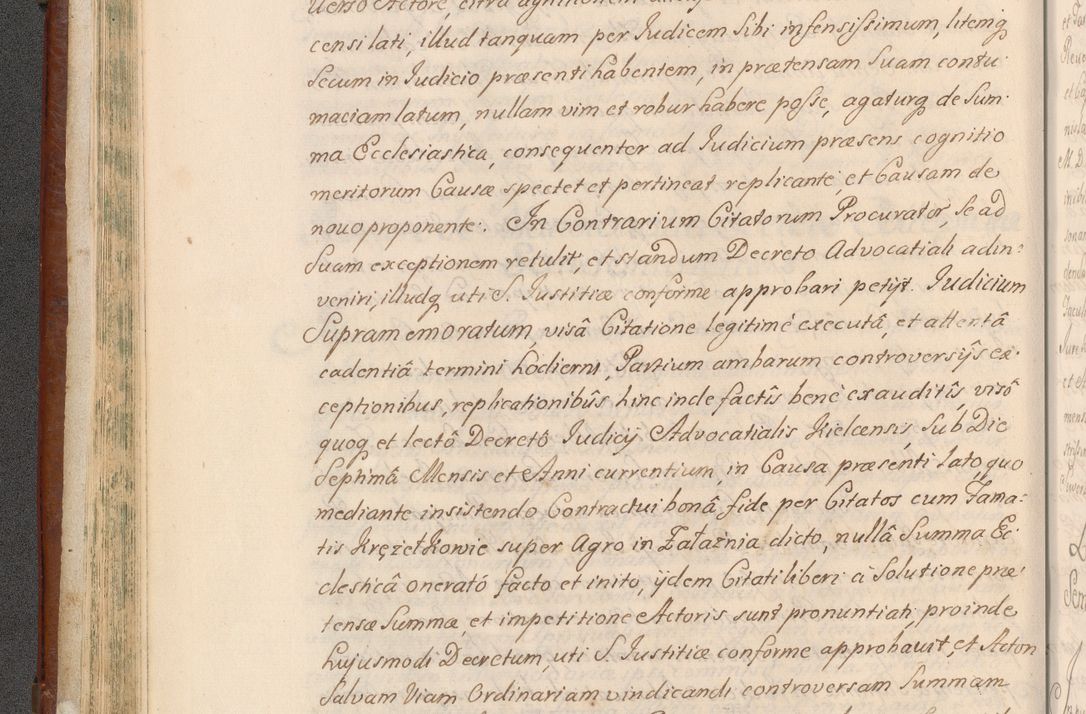 censilati, illud tanquam per Iudicem Sibi infensissimum, litemq
Secum in Iudicio præsenti habentem, in prætensam Suam contu:
maciam latum, nullam vim et robur habere posse, agaturq de Sum:
ma Ecclesiastica, consequenter ad Iudicium præsens cognitio
meritorum Causæ spectet et pertineat replicante, et Causam de
nouo proponente. In Contrarium Citatorum Procurator, Se ad
Suam exceptionem retulit, et standum Decreto Advocatiali adin:
veniri, illudq uti S. Iustitiæ conforme approbari petijt. Iudicium
Supramemoratum, visâ Citatione legitimè executâ, et attentâ
cadentiâ termini hodierni, Partium ambarum controversijs ex:
ceptionibus, replicationibûs hinc inde factîs benè exauditîs, visô
quoq et lectô Decretô Iudicij Advocatialis Kielcensis, Sub Die
Septimâ Mensis et Anni currentium, in Causa præsenti lato, quo
mediante insistendo Contractui bonâ fide per Citatos cum Fama:
tis Krężełkowie super Agro in Załaźnia dicto, nullâ Summa Ec:
clesticâ onerató facto et inito, ijdem Citati liberi à Solutione præ:
tensæ Summæ, et impetitione Actoris sunt pronuntiati, proinde
hujusmodi Decretum, uti S. Iustitiæ conforme approbauit, et Actori
Salvam Viam Ordinariam vindicandi controversam Summam